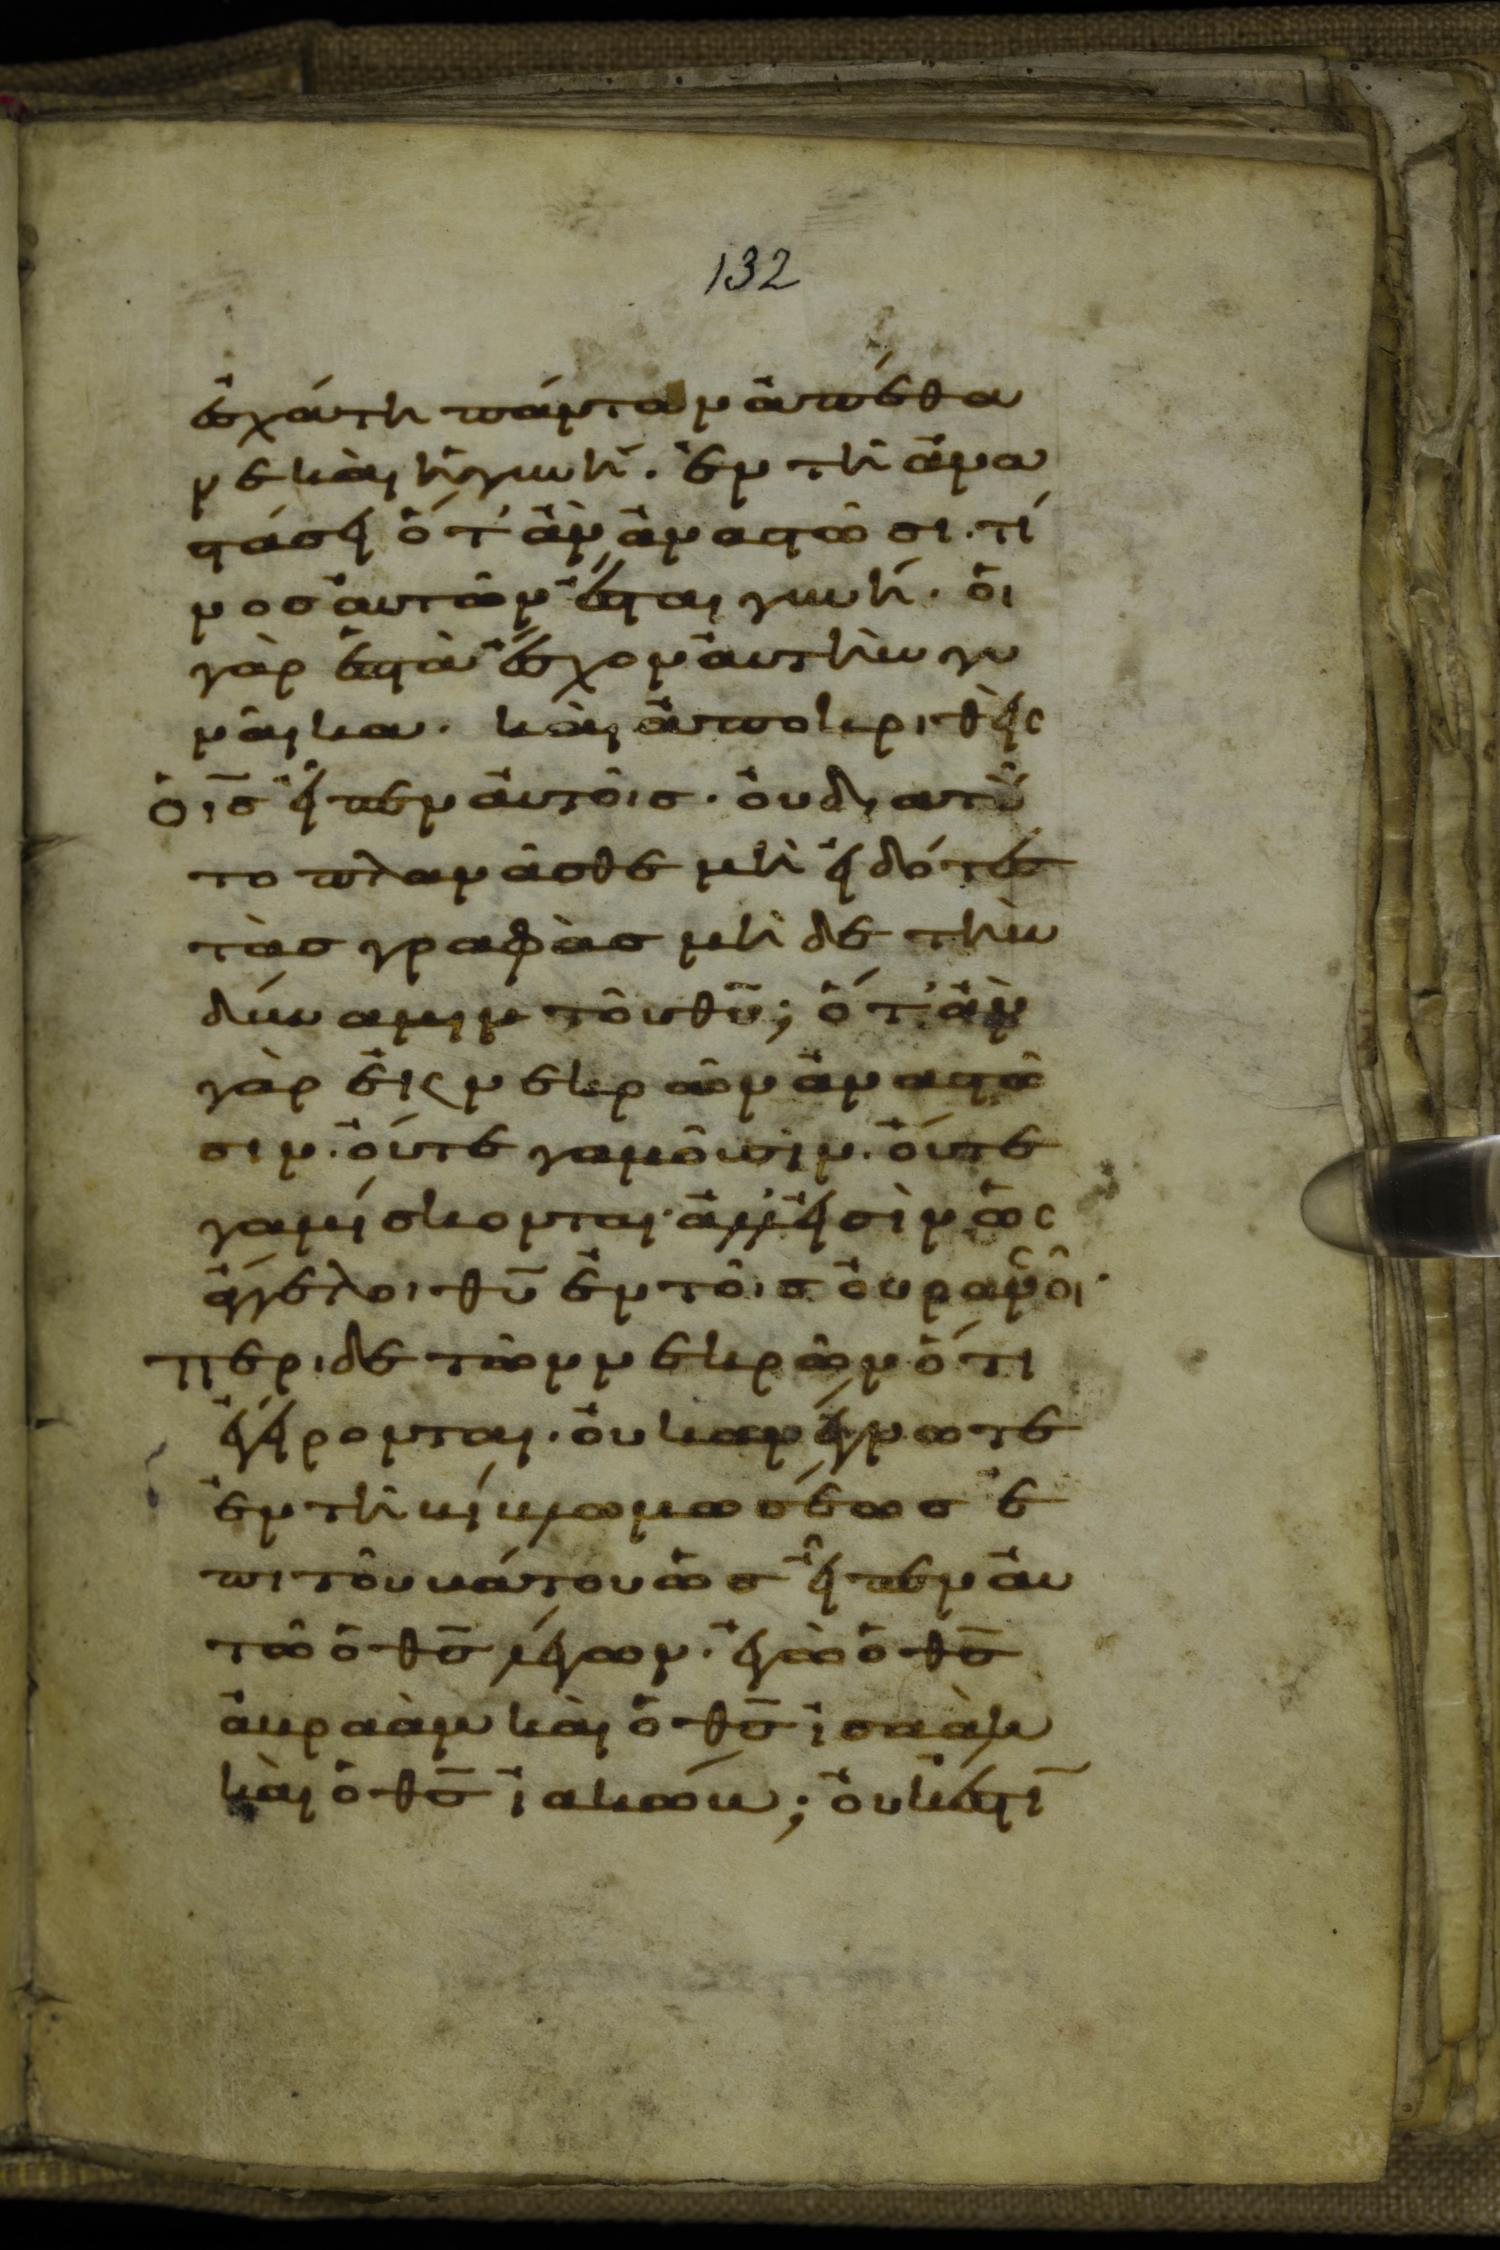 132
ἐσχάτη πάντων ἀπέθα
νε καὶ ἡ γυνή. ἐν τῇ ἀνα
στάσει ὅτ' ἂν ἀναστῶσι. τί
νος αὐτῶν ἔσται γυνή. οἱ
γὰρ ἑπτὰ ἔσχον αὐτὴν γυ
ναῖκα. καὶ ἀποκριθεὶς
ὁ ι̅ς̅ εἶπεν αὐτοῖς. οὐ διατοῦ
το πλανᾶσθε μὴ εἰδότες
τὰς γραφὰς μὴ δὲ τὴν
δύναμιν τοῦ θ̅υ̅; ὅτ' ἂν
γὰρ εἰς νεκρῶν ἀναστῶ
σιν. οὔτε γαμοῦσιν. οὔτε
γαμίσκονται. ἀλλ' εἰσὶν ὡς
ἄγγελοι θ̅υ̅ ἐν τοῖς οὐρανοῖ.
περι δὲ τῶν νεκρῶν ὅτι
ἐγείρονται. οὐκ ἀνέγνωτε
ἐν τῇ βίβλω μωσέως ἐ
πι τοῦ βάτου ὡς εἶπεν αὐ
τῶ ὁ θ̅ς̅ λέγων. ἐγὼ ὁ θ̅ς̅
ἀβραὰμ καὶ ὁ θ̅ς̅ ἰσαὰκ
καὶ ὁ θ̅ς̅ ἰακώβ; οὐκ ἔστι